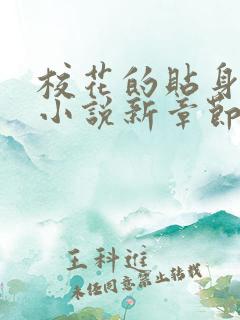 校花的貼身
小說新章節
王科進
未经同意禁止转载